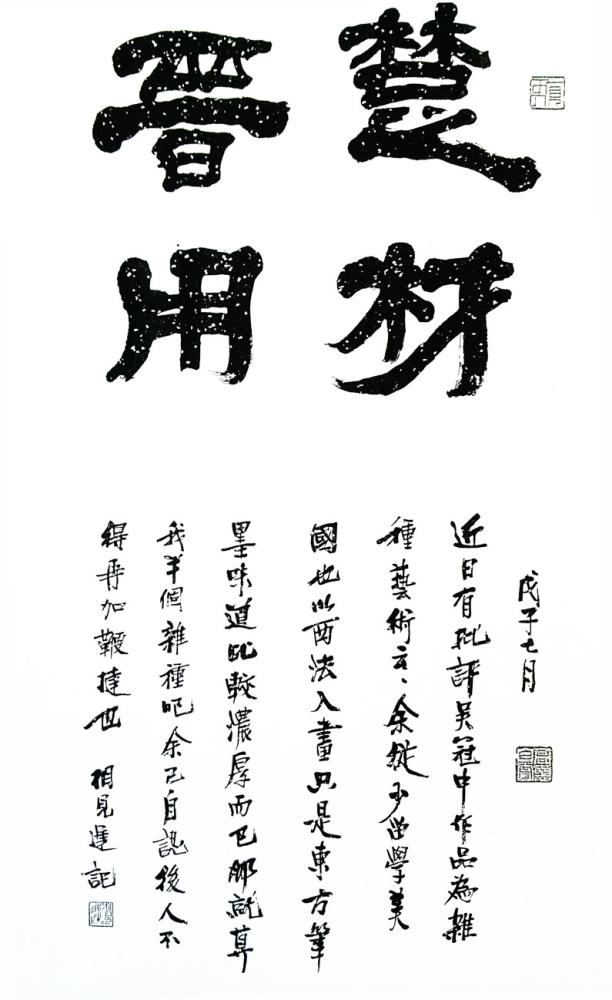 楚材
晉用
戊子七月
近日有批評吳冠中作品為雜
種藝術云、余從少留學美
國也以西法入畫只是東方筆
墨味道比較濃厚而已那就算
我半個雜種吧余已自認後人不
得再加鞭撻也 相見遲記